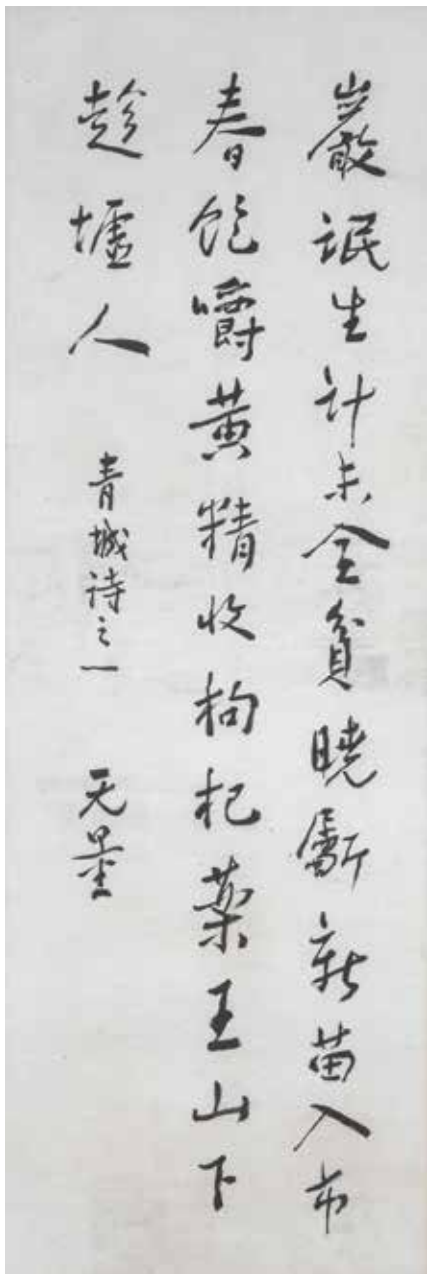 巖氓生计未全貧曉斸新苗入市
春飽嚼黄精收枸杞药王山下
趁墟人
青城诗之一
无量